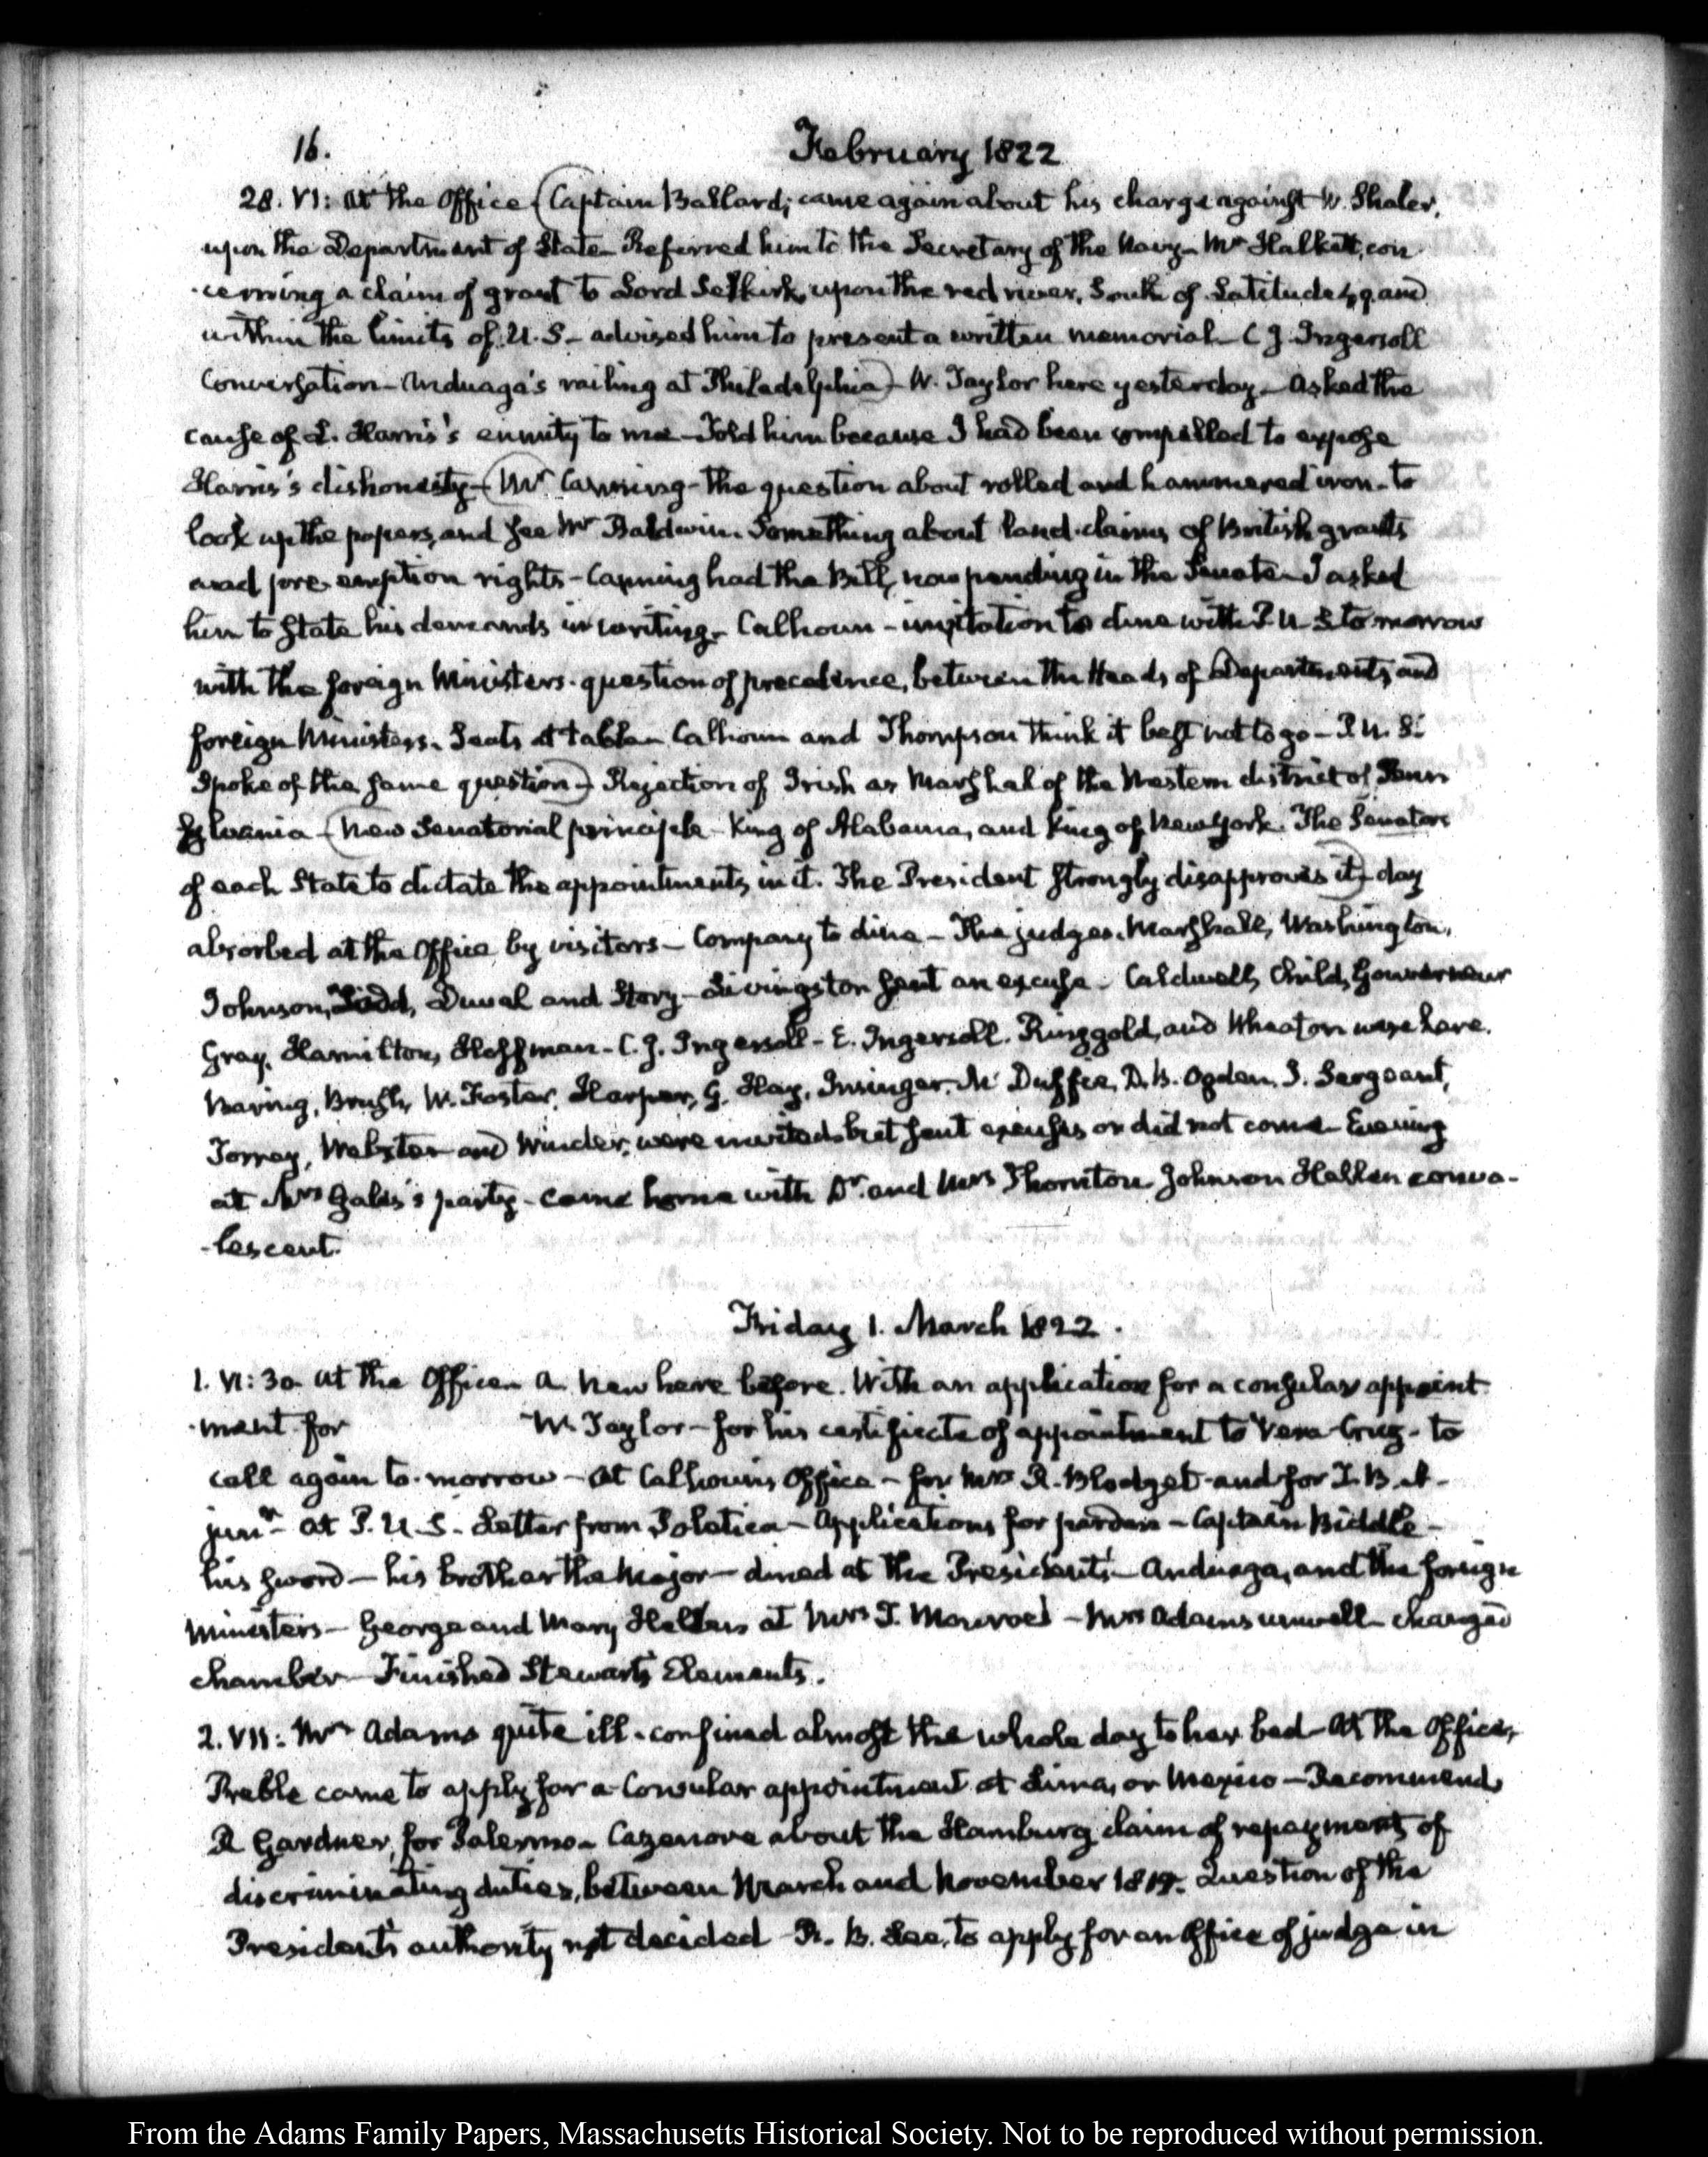 16. February 1822
28. VI: At the Office (Captain Ballard; came again about his charge against W. Shaler,
upon the Department of State—Referred him to the Secretary of the Navy—Mr Halkett, con
-cerning a claim of grant to Lord Selkirk, upon the red river, South of Latitude 49 and
within the limits of U.S.—advised him to present a written memorial—C J. Ingersoll
Conversation—Anduaga's railing at Philadelphia)—W. Taylor here yesterday—Asked the
cause of L. Harris's enmity to me—Told him because I had been compelled to expose
Harris's dishonesty—(Mr Canning—the question about rolled and hammered iron—to
look up the papers, and see Mr Baldwin. Something about land-claims of British grants
and pre-emption rights—Canning had the Bill, now pending in the Senate—I asked
him to State his demands in writing—Calhoun—invitation to dine with P. U. S. to morrow
with the foreign Ministers—question of precedence, between the Heads of Departments, and
foreign Ministers. Seats at table—Calhoun and Thompson think it best not to go—P. U. S.
Spoke of the same question)—Rejection of Irish as Marshal of the Western district of Penn
sylvania—(New Senatorial principle—King of Alabama, and King of New York. The Senators
of each State to dictate the appointments in it. The President strongly disapproves it)—day
absorbed at the Office by visitors—Company to dine—The judges. Marshall, Washington,
Johnson, Todd, Duval and Story—Livingston sent an excuse—Caldwell, Child, Gouverneur
Gray, Hamilton, Hoffman—C. J. Ingersoll—E. Ingersoll. Ringgold, and Wheaton were here.
Baring, Brush, W. Foster, Harper, G. Hay, Insinger. Mc Duffie, D. B. Ogden, J. Sergeant,
Torrey, Webster and Winder, were invited but sent excuses or did not come—Evening
at Mrs Gales's party—came home with Dr. and Mrs Thornton Johnson Hellen conva-
-lescent.
Friday 1. March 1822.
1. VI: 30 at the Office—A. New here before. With an application for a consular appoint
-ment for W. Taylor—for his certificate of appointment to Vera-Cruz—to
call again to-morrow—At Calhoun's Office—for Mrs R. Blodget—and for T. B. A—
junr—At P. U. S. Letter from Poletica—Applications for pardon—Captain Biddle—
his sword—his brother the Major—dined at the President's—Anduaga, and the foreign
ministers—George and Mary Hellen at Mrs J. Monroe's—Mrs Adams unwell—changed
chamber—Finished Stewart's Elements.
2. VII: Mrs Adams quite ill—confined almost the whole day to her bed—At the Office,
Preble came to apply for a Consular appointment at Lima, or Mexico—Recommends
R Gardner, for Palermo—Cazenove about the Hamburg claim of repayment of
discriminating duties, between March and November 1819. Question of the
President's authority not decided—R. B. Lee, to apply for an Office of judge in
From the Adams Family Papers, Massachusetts Historical Society. Not to be reproduced without permission.